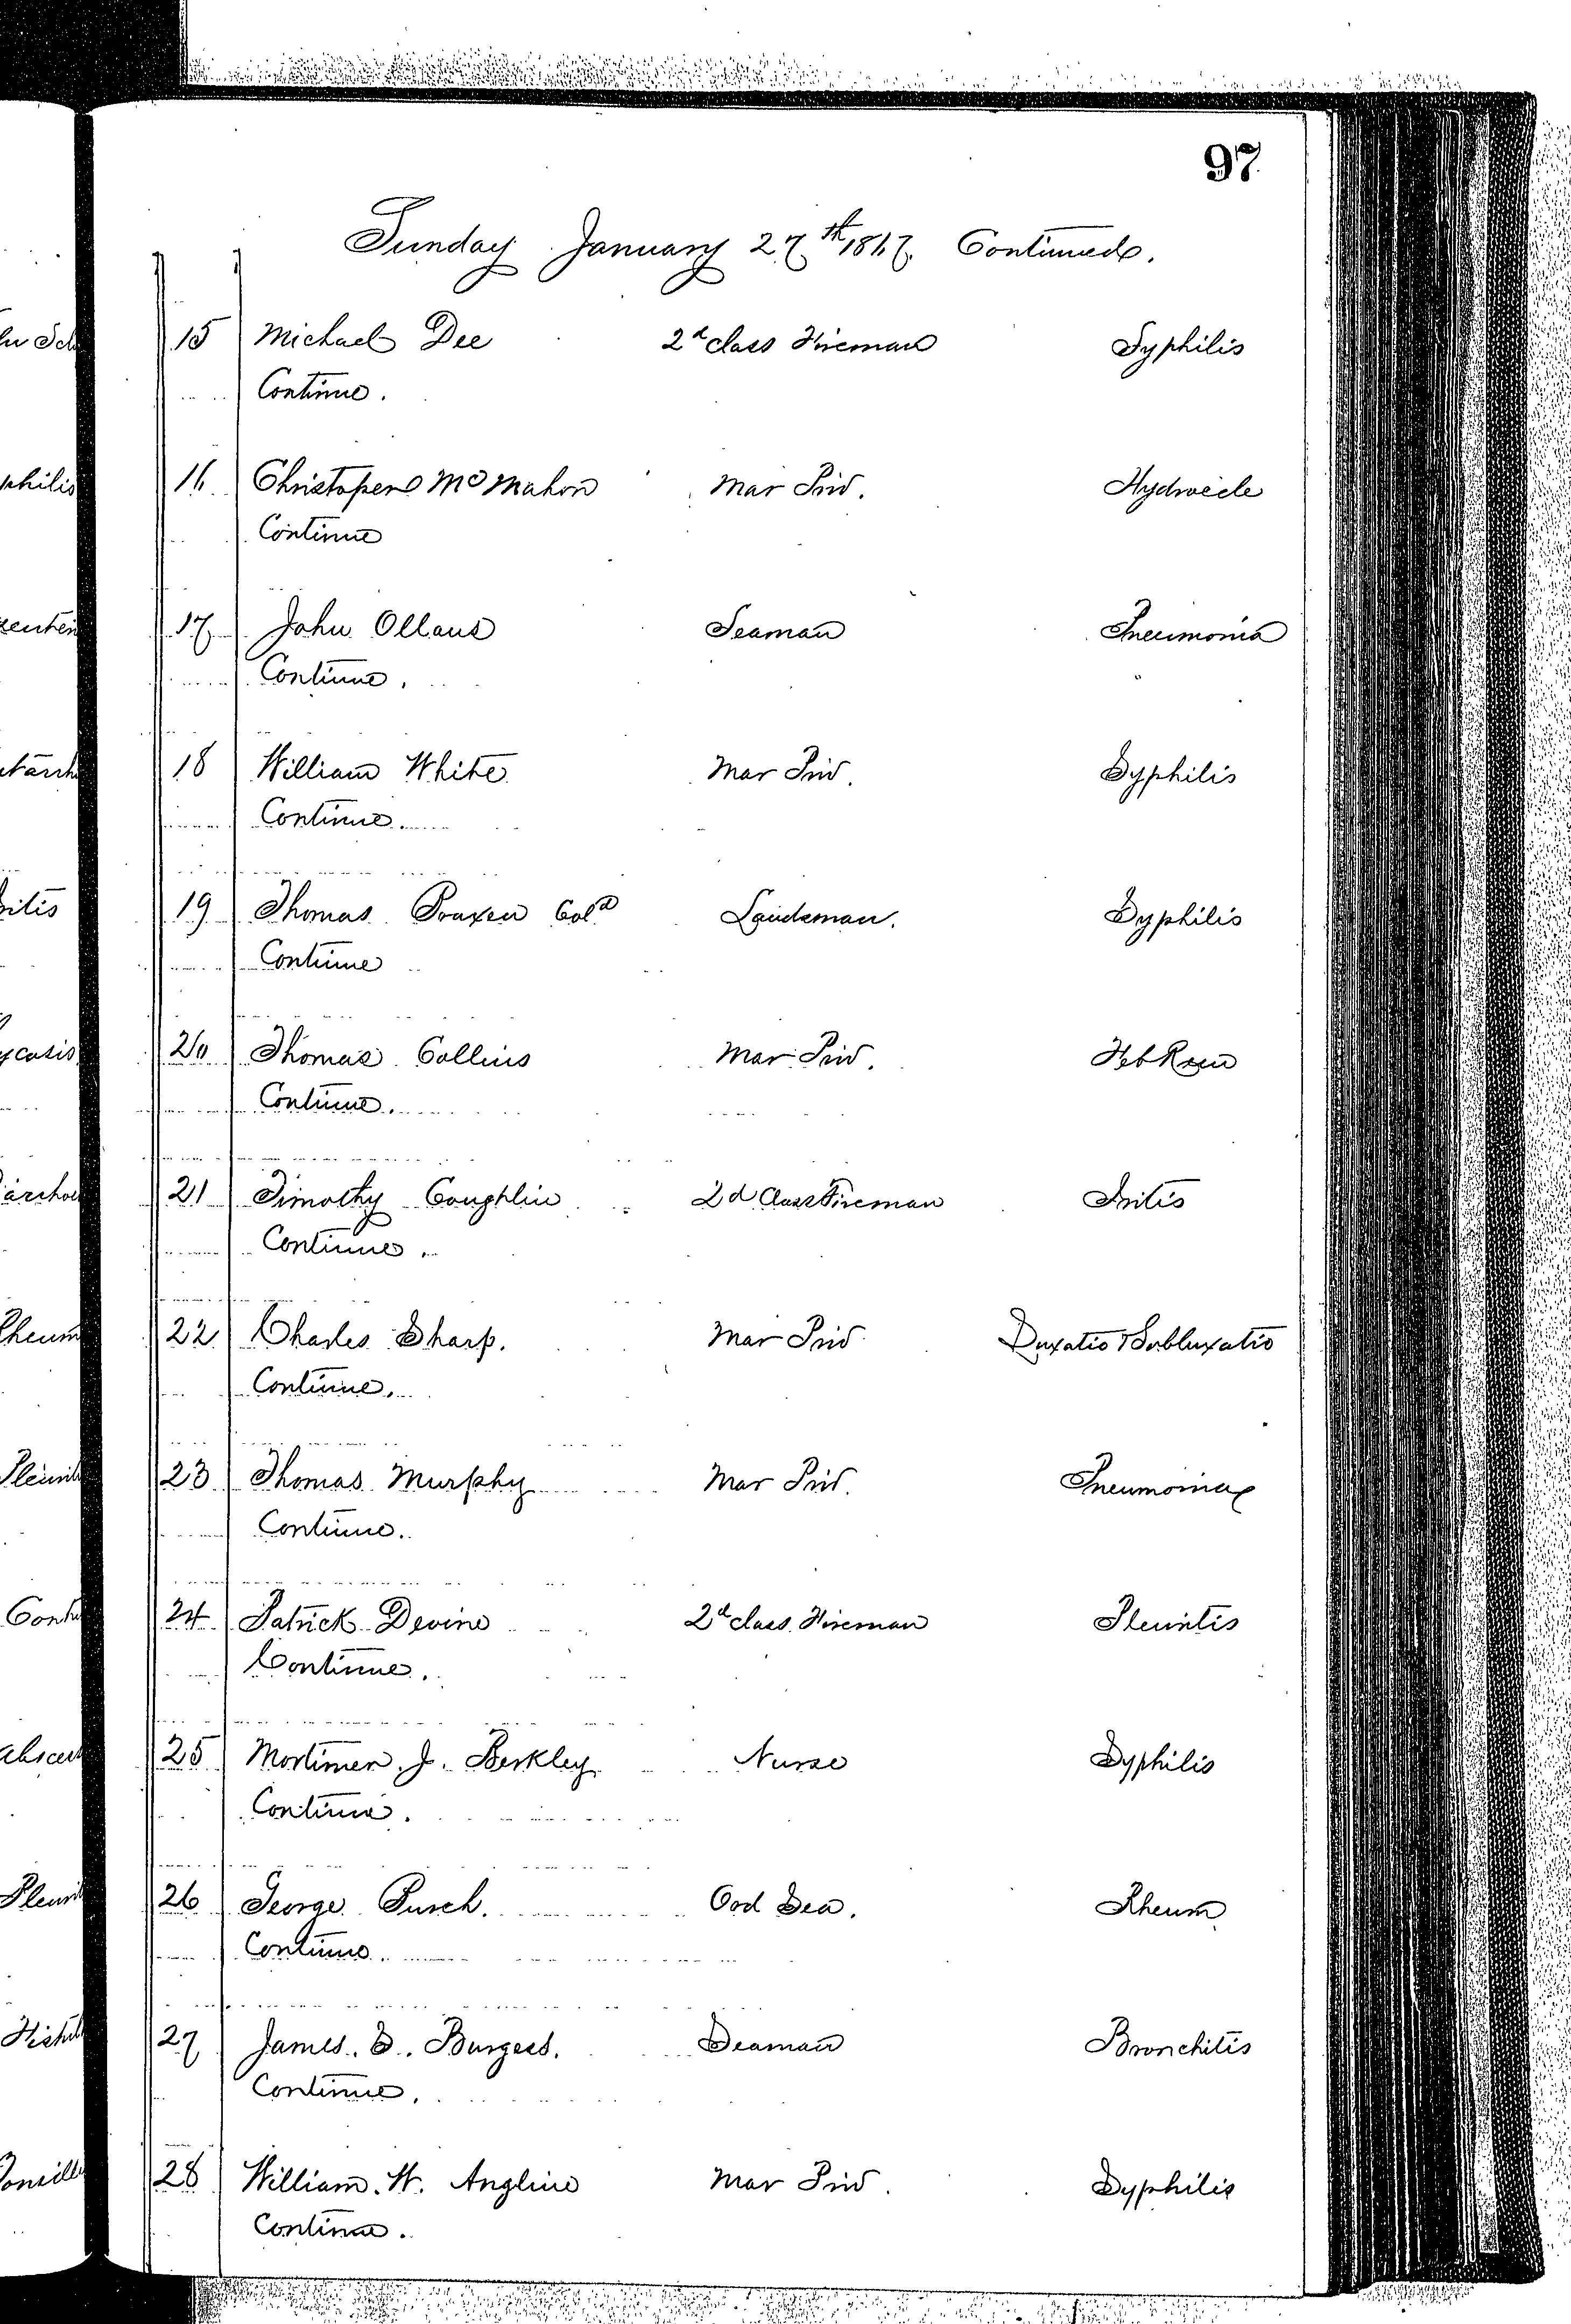 97
Sunday January 27th 1867. Continued.
15 Michael Dee 2d class Fireman Syphilis
Continue.
16 Christoper McMahon Mar Priv. Hydrocele
Continue
17 John Ollaus Seaman Pneumonia
Continue.
18 William White Mar Priv. Syphilis
Continue.
19 Thomas Cold Landsman. Syphilis
Continue
20 Thomas Collins Mar Priv. Feb Rem
Continue.
21 Timothy Coughlin 2d Class Fireman Iritis
Continue.
22 Charles Sharp. Mar Priv Luxatio & Subluxatio
Continue.
23 Thomas Murphy Mar Priv. Pneumonia
Continue.
24 Patrick Devine 2d class Fireman Pleuritis
Continue.
25 Mortimer J. Berkley Nurse Syphilis
Continue.
26 George Pusch. Ord Sea. Rheum
Continue.
27 James. E. Burgess. Seaman Bronchitis
Continue.
28 William. W. Angline Mar Priv. Syphilis
Continue.